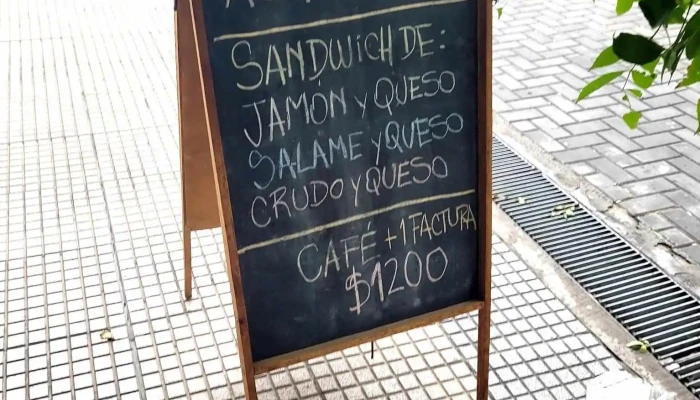 SANDWICH DE:
JAMÓN y QUESO
SALAME y QUESO
CRUDO y QUESO
CAFÉ + 1 FACTURA
$1200